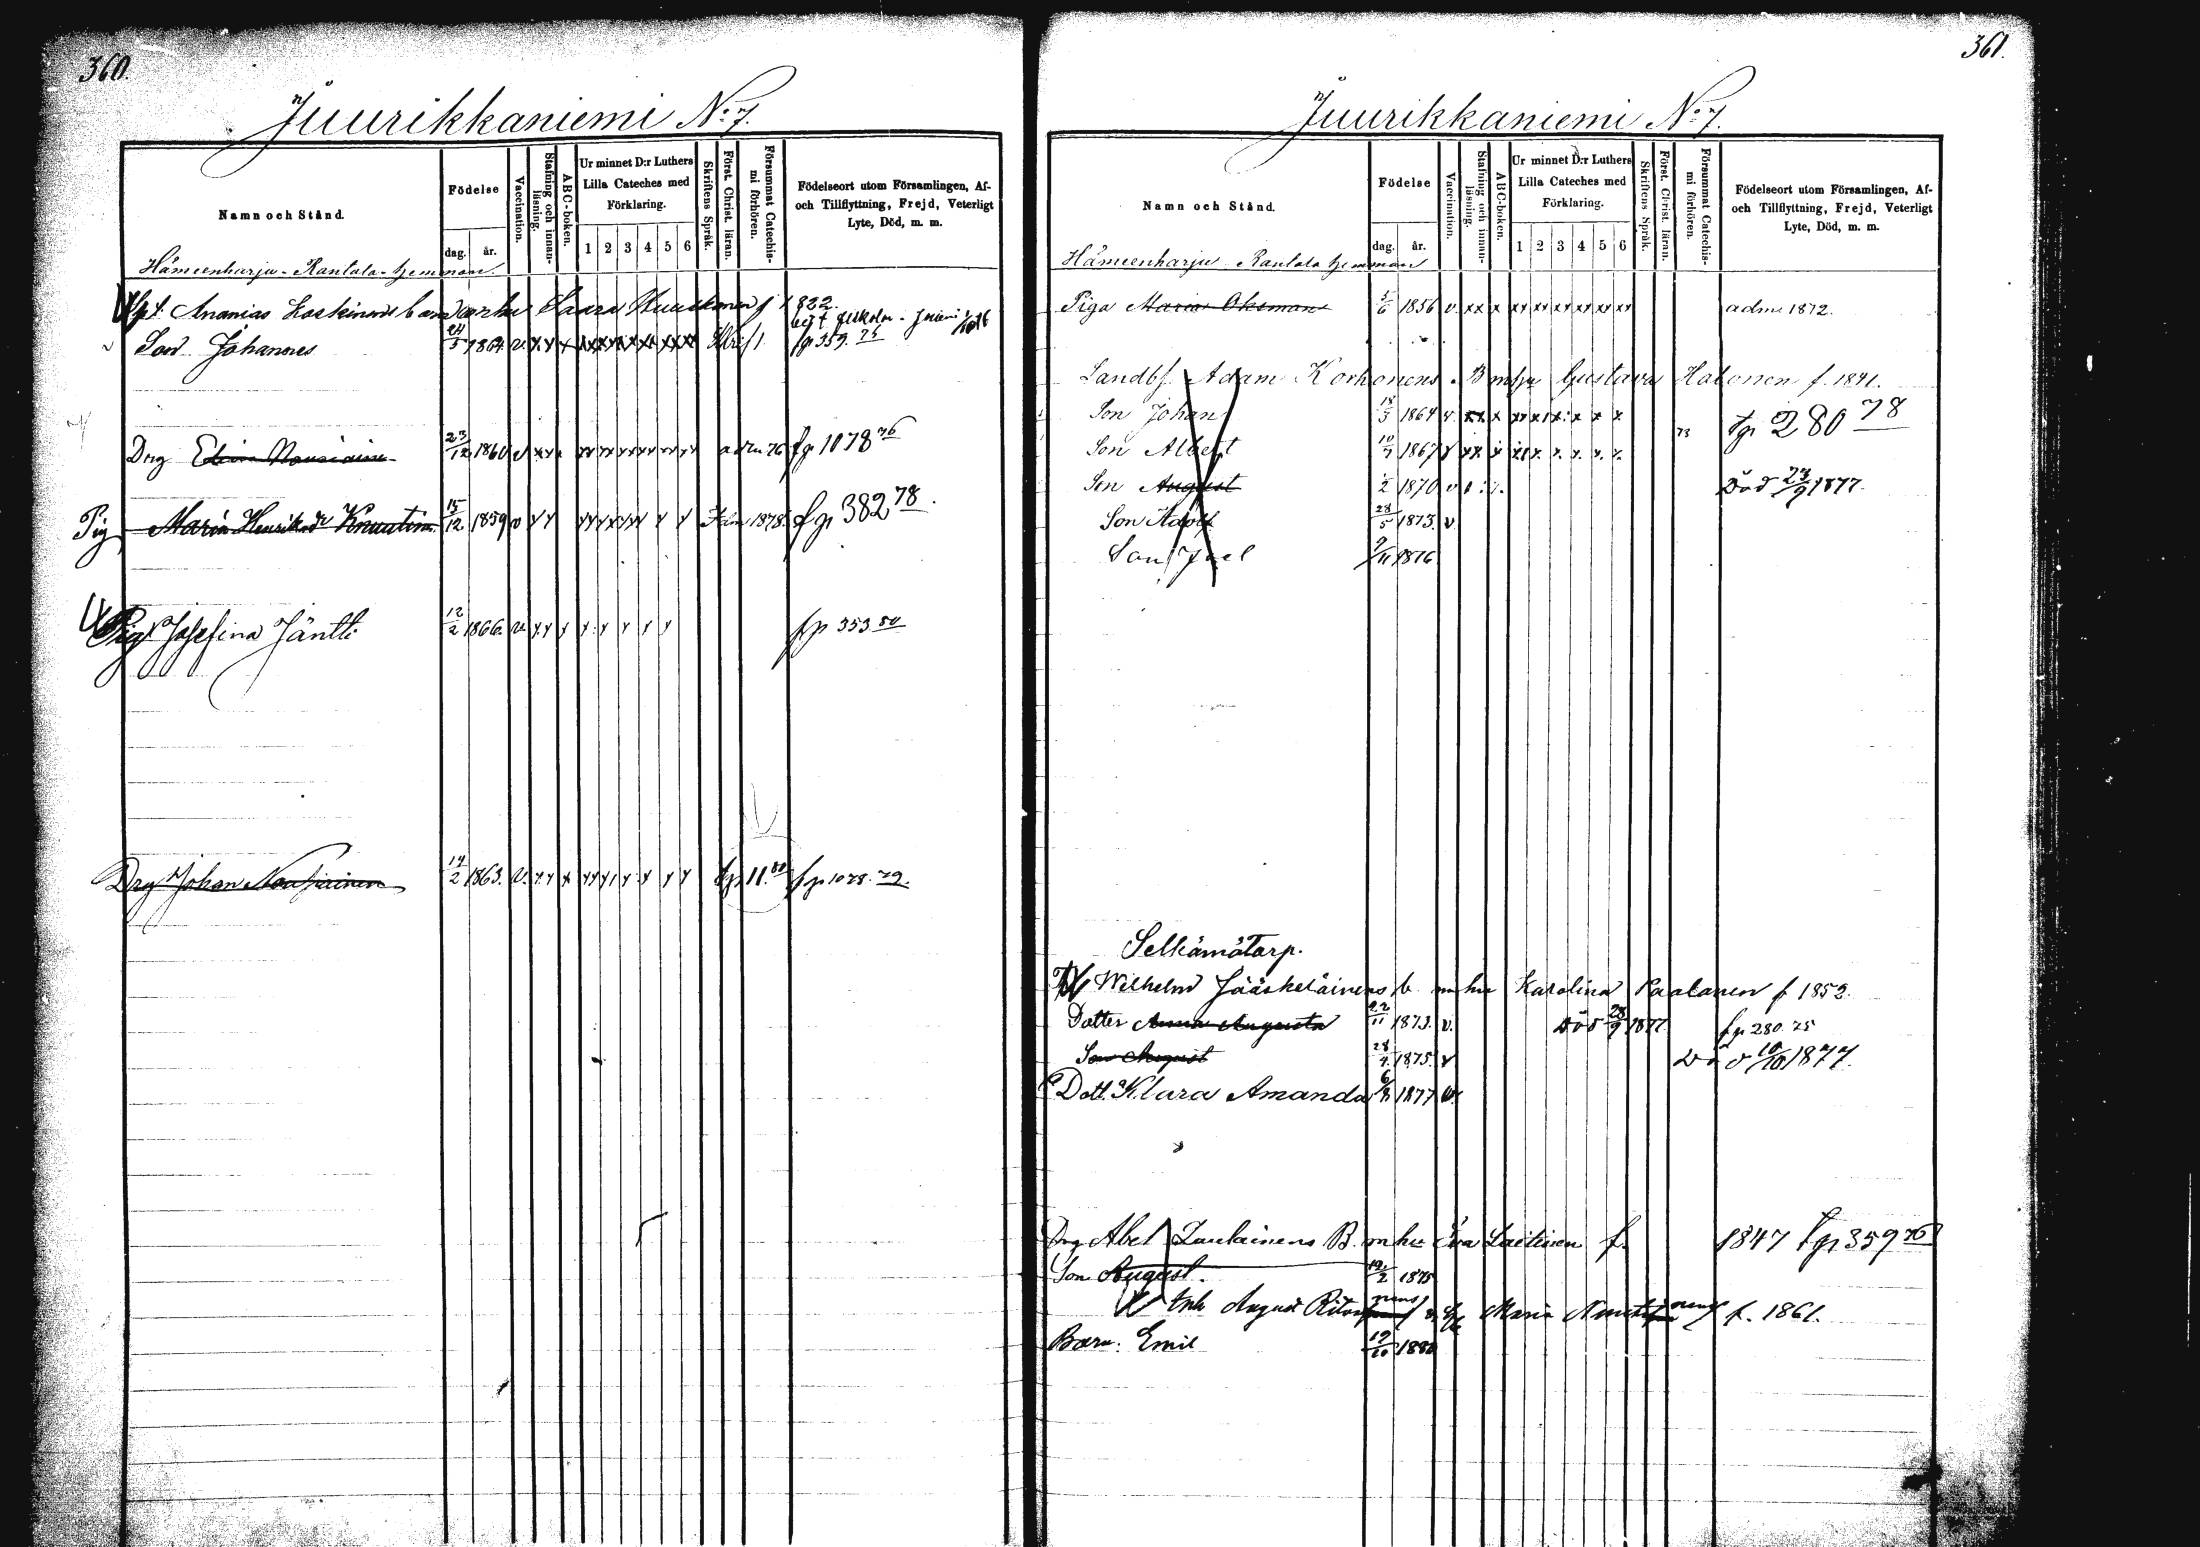 360.
Juurikkaniemi No 7.
Namn och Stånd.
Födelse
dag.
år.
Vaccination.
Stafning och innanläsning.
ABC-boken.
Ur minnet D:r Luthers
Lilla Cateches med
Förklaring.
1 2 3 4 5 6
Skriftens Språk.
Först. Christ. läran.
Försummat Catechismi förhören.
Födelseort utom Församlingen, Af-
och Tillflyttning, Frejd, Veterligt
Lyte, Död, m. m.
Hämeenharju - Rantala hemman
Ananias Koskinens barn Saara f 1822.
Son Johannes 24/5 1864. v. x x x fp 359. 75
Drg 23/12 1860 v x x adm 76 fp 1078 76
Pig Maria Henriksdr 15/12 1859 v x x 1878. fp 382 78.
Pig Josefina Jäntti 12/2 1866. v x x x x x x x x fp 353 80
Drg Johan 14/2 1863. v. x x x fp 11. 80 fp 1078. 79.
361.
Juurikkaniemi No 7.
Namn och Stånd.
Födelse
dag.
år.
Vaccination.
Stafning och innanläsning.
ABC-boken.
Ur minnet D:r Luthers
Lilla Cateches med
Förklaring.
1 2 3 4 5 6
Skriftens Språk.
Först. Christ. läran.
Försummat Catechismi förhören.
Födelseort utom Församlingen, Af-
och Tillflyttning, Frejd, Veterligt
Lyte, Död, m. m.
Hämeenharju Rantala hemman
Piga Maria Oksman 5/6 1856 v. xx x xx xx xx xx xx xx adm. 1872.
Landbf. Adam Korhonens Gustava Halonen f. 1841.
Son Johan 18/3 1864 v. xx x fp 280 78
Son Albert 10/7 1867 v xx x
Son August 1/2 1870 v Död 24/9 1877.
Son Adolf 28/5 1873. v
Son Joel 9/11 1876
Selkämätorp.
Wilhelm Jääskeläinens b mhu Karolina Paalanen f 1852.
Dotter Anna Augusta 22/11 1873. v. Död 28/9 1877 fp 280. 75
Son August 28/4 1875. v Död 10/10 1877.
Dott. Klara Amanda 6/8 1877 v.
Drg Abel Laulainens B. mhu Eva Laitinen f. 1847 fp 359 76
Son August. 12/2 1875
Inh August Maria f. 1861.
Barn: Emil 19/10 1880